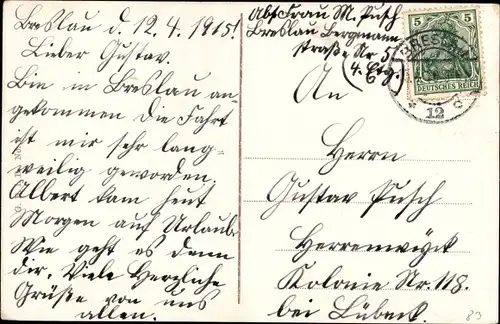 Breslau d. 12.4.1915!
Lieber Gustav.
Bin in Breslau an-
gekommen die Fahrt
ist mir sehr lang-
weilig geworden.
Albert kam heut
Morgen auf Urlaub.
Wie geht es denn
dir. Viele Herzliche
Grüße von uns
allen.
Abs. Frau M. Pusch
Breslau Bergmann
straße Nr 5
4. Etg.
5 5
DEUTSCHES REICH
BRESLAU
* 12 c
An
Herrn
Gustav Pusch
Herrenwyk
Kolonie Nr. 118.
bei Lübeck.
83